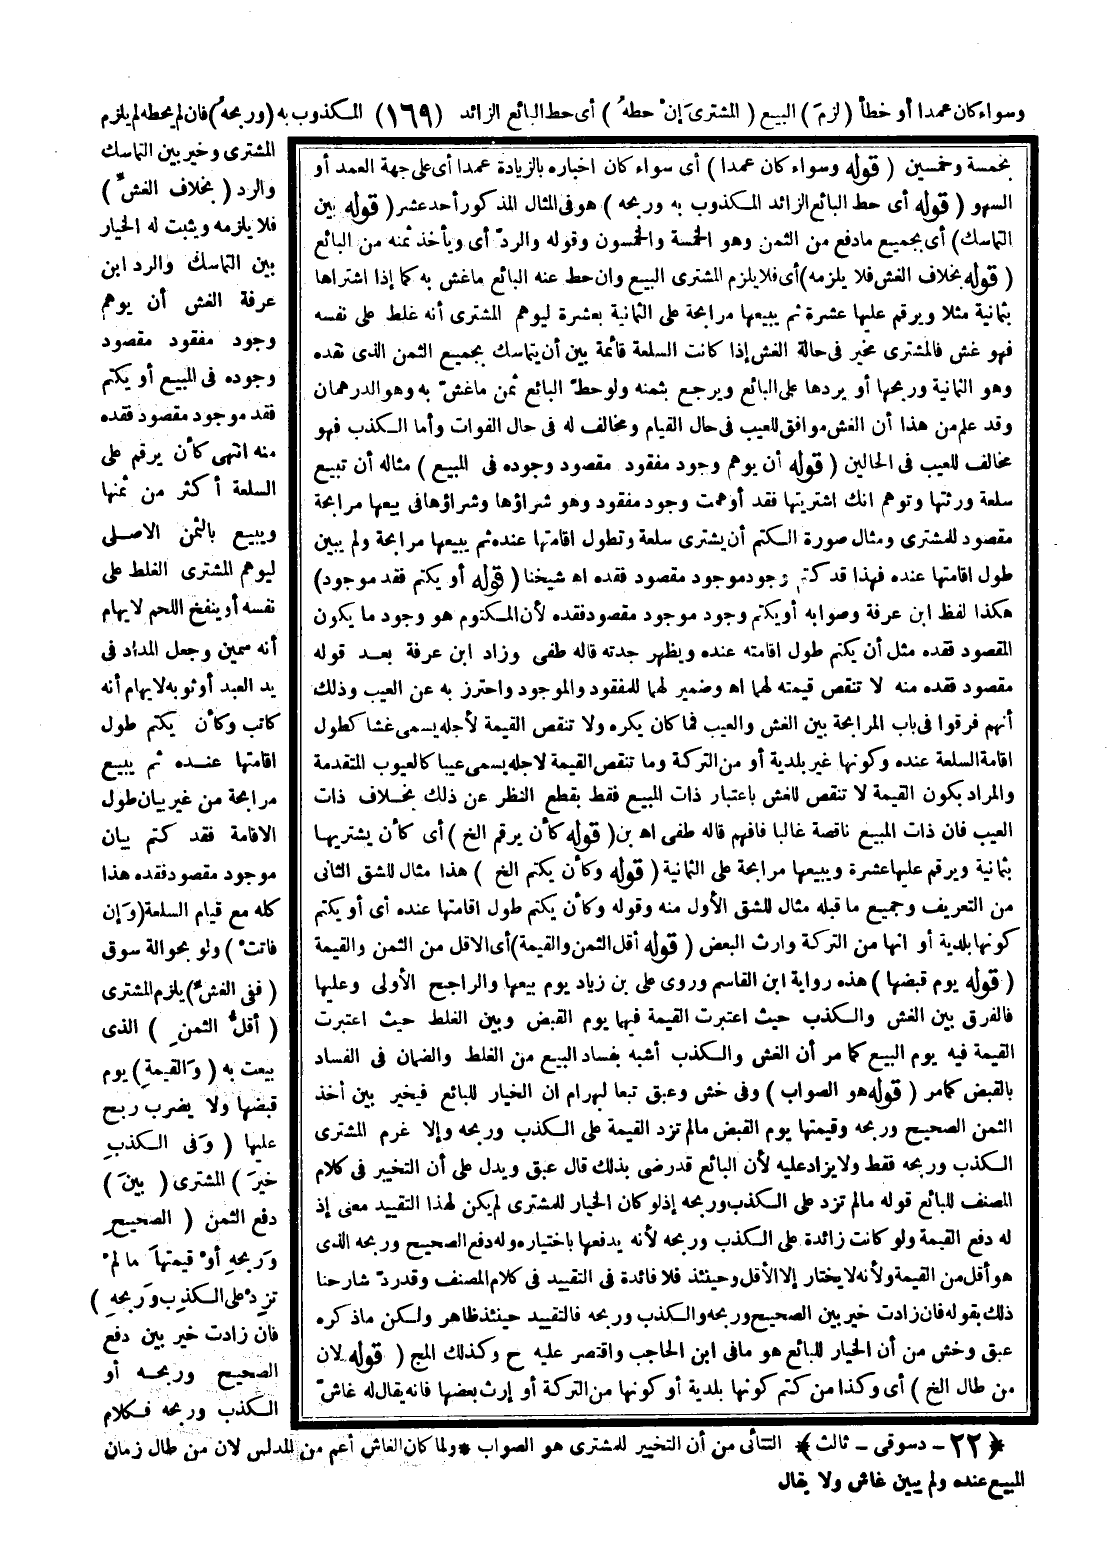 وسواء كان عمدا أو خطأ (لزمَ) البيع (المشترىَ إنْ حطهُ) أى حط البائع الزائد (١٦٩) المكذوب به (وربحهُ) فان لم يحطه لم يلزم
المشترى وخير بين التماسك
والرد (بخلاف الغشِّ)
فلا يلزمه ويثبت له الخيار
بين التماسك والرد ابن
عرفة الغش أن يوهم
وجود مفقود مقصود
وجوده فى المبيع أو يكتم
فقد موجود مقصود فقده
منه انتهى كأن يرقم على
السلعة أكثر من ثمنها
ويبيع بالثمن الاصلى
ليوهم المشترى الغلط على
نفسه أو ينفخ اللحم لايهام
أنه سمين وجعل المداد فى
يد العبد أو ثوبه لايهام أنه
كاتب وكأن يكتم طول
اقامتها عنده ثم يبيع
مرابحة من غير بيان طول
الاقامة فقد كتم بيان
موجود مقصود فقده هذا
كله مع قيام السلعة (وَإن
فاتتْ) ولو بحوالة سوق
(ففى الغشِّ) يلزم المشترى
(أقلُّ الثمنِ) الذى
بيعت به (وَالقيمةِ) يوم
قبضها ولا يضرب ربح
عليها (وَفى الكذبِ
خيرَ) المشترى (بينَ)
دفع الثمن (الصحيحِ
وَربحهِ أوْ قيمتهاَ ما لمْ
تزدْ على الكذبِ وَربحهِ)
فان زادت خير بين دفع
الصحيح وربحه أو
الكذب وربحه فكلام
بخمسة وخمسين (قوله وسواء كان عمدا) أى سواء كان اخباره بالزيادة عمدا أى على جهة العمد أو
السهو (قوله أى حط البائع الزائد المكذوب به وربحه) هو فى المثال المذكور أحد عشر (قوله بين
التماسك) أى بجميع مادفع من الثمن وهو الخمسة والخمسون وقوله والردّ أى ويأخذ ثمنه من البائع
(قوله بخلاف الغش فلا يلزمه) أى فلا يلزم المشترى البيع وان حط عنه البائع ماغش به كما إذا اشتراها
بثمانية مثلا ويرقم عليها عشرة ثم يبيعها مرابحة على الثمانية بعشرة ليوهم المشترى أنه غلط على نفسه
فهو غش فالمشترى مخير فى حالة الغش إذا كانت السلعة قائمة بين أن يتماسك بجميع الثمن الذى نقده
وهو الثمانية وربحها أو يردها على البائع ويرجع بثمنه ولو حطّ البائع ثمن ماغشّ به وهو الدرهمان
وقد علم من هذا أن الغش موافق للعيب فى حال القيام ومخالف له فى حال الفوات وأما الكذب فهو
مخالف للعيب فى الحالين (قوله أن يوهم وجود مفقود مقصود وجوده فى المبيع) مثاله أن تبيع
سلعة ورثتها وتوهم انك اشتريتها فقد أوهمت وجود مفقود وهو شراؤها وشراؤها فى بيعها مرابحة
مقصود للمشترى ومثال صورة الكتم أن يشترى سلعة وتطول اقامتها عنده ثم يبيعها مرابحة ولم يبين
طول اقامتها عنده فهذا قد كتم وجود موجود مقصود فقده اه شيخنا (قوله أو يكتم فقد موجود)
هكذا لفظ ابن عرفة وصوابه أو يكتم وجود موجود مقصود فقده لأن المكتوم هو وجود ما يكون
المقصود فقده مثل أن يكتم طول اقامته عنده ويظهر جدته قاله طفى وزاد ابن عرفة بعد قوله
مقصود فقده منه لا تنقص قيمته لهما اه وضمير لهما للمفقود والموجود واحترز به عن العيب وذلك
أنهم فرقوا فى باب المرابحة بين الغش والعيب فما كان يكره ولا تنقص القيمة لأجله يسمى غشا كطول
اقامة السلعة عنده وكونها غير بلدية أو من التركة وما تنقص القيمة لاجله يسمى عيبا كالعيوب المتقدمة
والمراد بكون القيمة لا تنقص للغش باعتبار ذات المبيع فقط بقطع النظر عن ذلك بخلاف ذات
العيب فان ذات المبيع ناقصة غالبا فافهم قاله طفى اه بن (قوله كأن يرقم الخ) أى كأن يشتريها
بثمانية ويرقم عليها عشرة ويبيعها مرابحة على الثمانية (قوله وكأن يكتم الخ) هذا مثال للشق الثانى
من التعريف وجميع ما قبله مثال للشق الأول منه وقوله وكأن يكتم طول اقامتها عنده أى أو يكتم
كونها بلدية أو انها من التركة وارث البعض (قوله أقل الثمن والقيمة) أى الاقل من الثمن والقيمة
(قوله يوم قبضها) هذه رواية ابن القاسم وروى على بن زياد يوم بيعها والراجح الأولى وعليها
فالفرق بين الغش والكذب حيث اعتبرت القيمة فيها يوم القبض وبين الغلط حيث اعتبرت
القيمة فيه يوم البيع كما مر أن الغش والكذب أشبه بفساد البيع من الغلط والضمان فى الفساد
بالقبض كما مر (قوله هو الصواب) وفى خش وعبق تبعا لبهرام ان الخيار للبائع فيخير بين أخذ
الثمن الصحيح وربحه وقيمتها يوم القبض مالم تزد القيمة على الكذب وربحه وإلا غرم المشترى
الكذب وربحه فقط ولا يزاد عليه لأن البائع قد رضى بذلك قال عبق ويدل على أن التخيير فى كلام
المصنف للبائع قوله مالم تزد على الكذب وربحه إذ لو كان الخيار للمشترى لم يكن لهذا التقييد معنى إذ
له دفع القيمة ولو كانت زائدة على الكذب وربحه لأنه يدفعها باختياره وله دفع الصحيح وربحه الذى
هو أقل من القيمة ولأنه لا يختار إلا الأقل وحينئذ فلا فائدة فى التقييد فى كلام المصنف وقد ردّ شارحنا
ذلك بقوله فان زادت خير بين الصحيح وربحه والكذب وربحه فالتقييد حينئذ ظاهر ولكن ماذكره
عبق وخش من أن الخيار للبائع هو مافى ابن الحاجب واقتصر عليه ح وكذلك المج (قوله لان
من طال الخ) أى وكذا من كتم كونها بلدية أو كونها من التركة أو إرث بعضها فانه يقال له غاشّ
﴿٢٢ - دسوقى - ثالث﴾ التتائى من أن التخيير للمشترى هو الصواب * ولما كان الغاش أعم من المدلس لان من طال زمان
المبيع عنده ولم يبين غاش ولا يقال